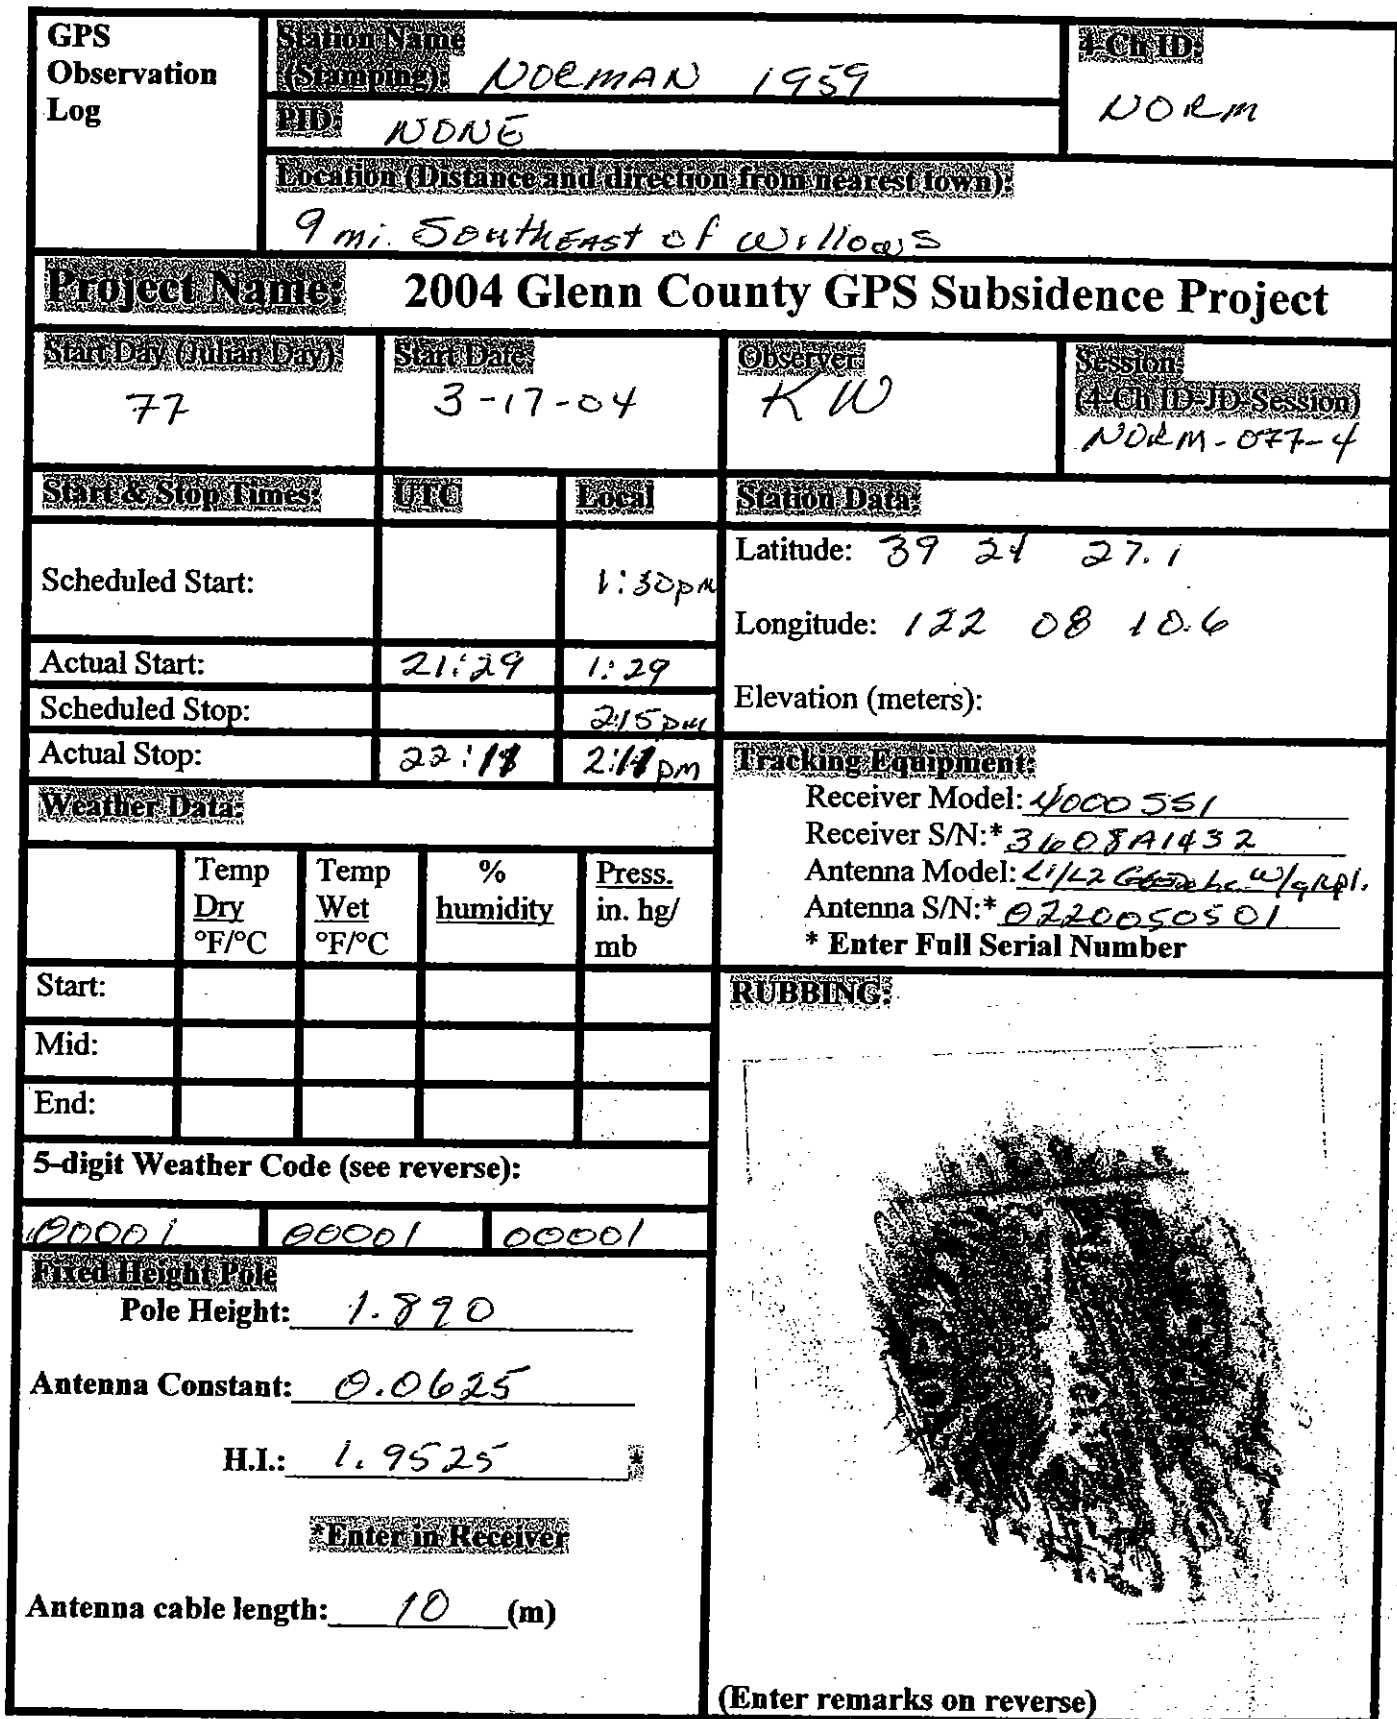 GPS
Observation
Log
Station Name
(Stamping): NORMAN 1959
4-Ch ID:
NORM
PID: NONE
Location (Distance and direction from nearest town):
9 mi. SouthEAST of Willows
Project Name: 2004 Glenn County GPS Subsidence Project
Start Day (Julian Day):
77
Start Date:
3-17-04
Observer:
KW
Session:
(4-Ch ID-JD-Session)
NORM-077-4
Start & Stop Times: UTC Local
Scheduled Start: 1:30pm
Actual Start: 21:29 1:29
Scheduled Stop: 2:15pm
Actual Stop: 22: 2: pm
Station Data:
Latitude: 39 24 27.1
Longitude: 122 08 10.6
Elevation (meters):
Tracking Equipment:
Receiver Model: 4000 SSI
Receiver S/N:* 3608A1432
Antenna Model: L1/L2 w/gRpl.
Antenna S/N:* 0220050501
* Enter Full Serial Number
Weather Data:
Temp
Dry
°F/°C
Temp
Wet
°F/°C
%
humidity
Press.
in. hg/
mb
Start:
Mid:
End:
5-digit Weather Code (see reverse):
00001 00001 00001
Fixed Height Pole
Pole Height: 1.890
Antenna Constant: 0.0625
H.I.: 1.9525 *
*Enter in Receiver
Antenna cable length: 10 (m)
RUBBING:
(Enter remarks on reverse)